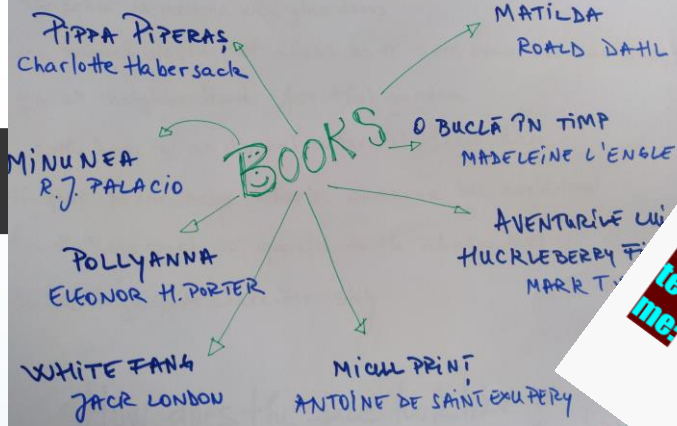 PIPPA PIPERAȘ
Charlotte Habersack
MATILDA
ROALD DAHL
BOOKS
O BUCLĂ ÎN TIMP
MADELEINE L'ENGLE
MINUNEA
R.J. PALACIO
AVENTURILE LUI
HUCKLEBERRY
MARK
POLLYANNA
ELEONOR H. PORTER
WHITE FANG
JACK LONDON
MICUL PRINȚ
ANTOINE DE SAINT EXUPERY
me: